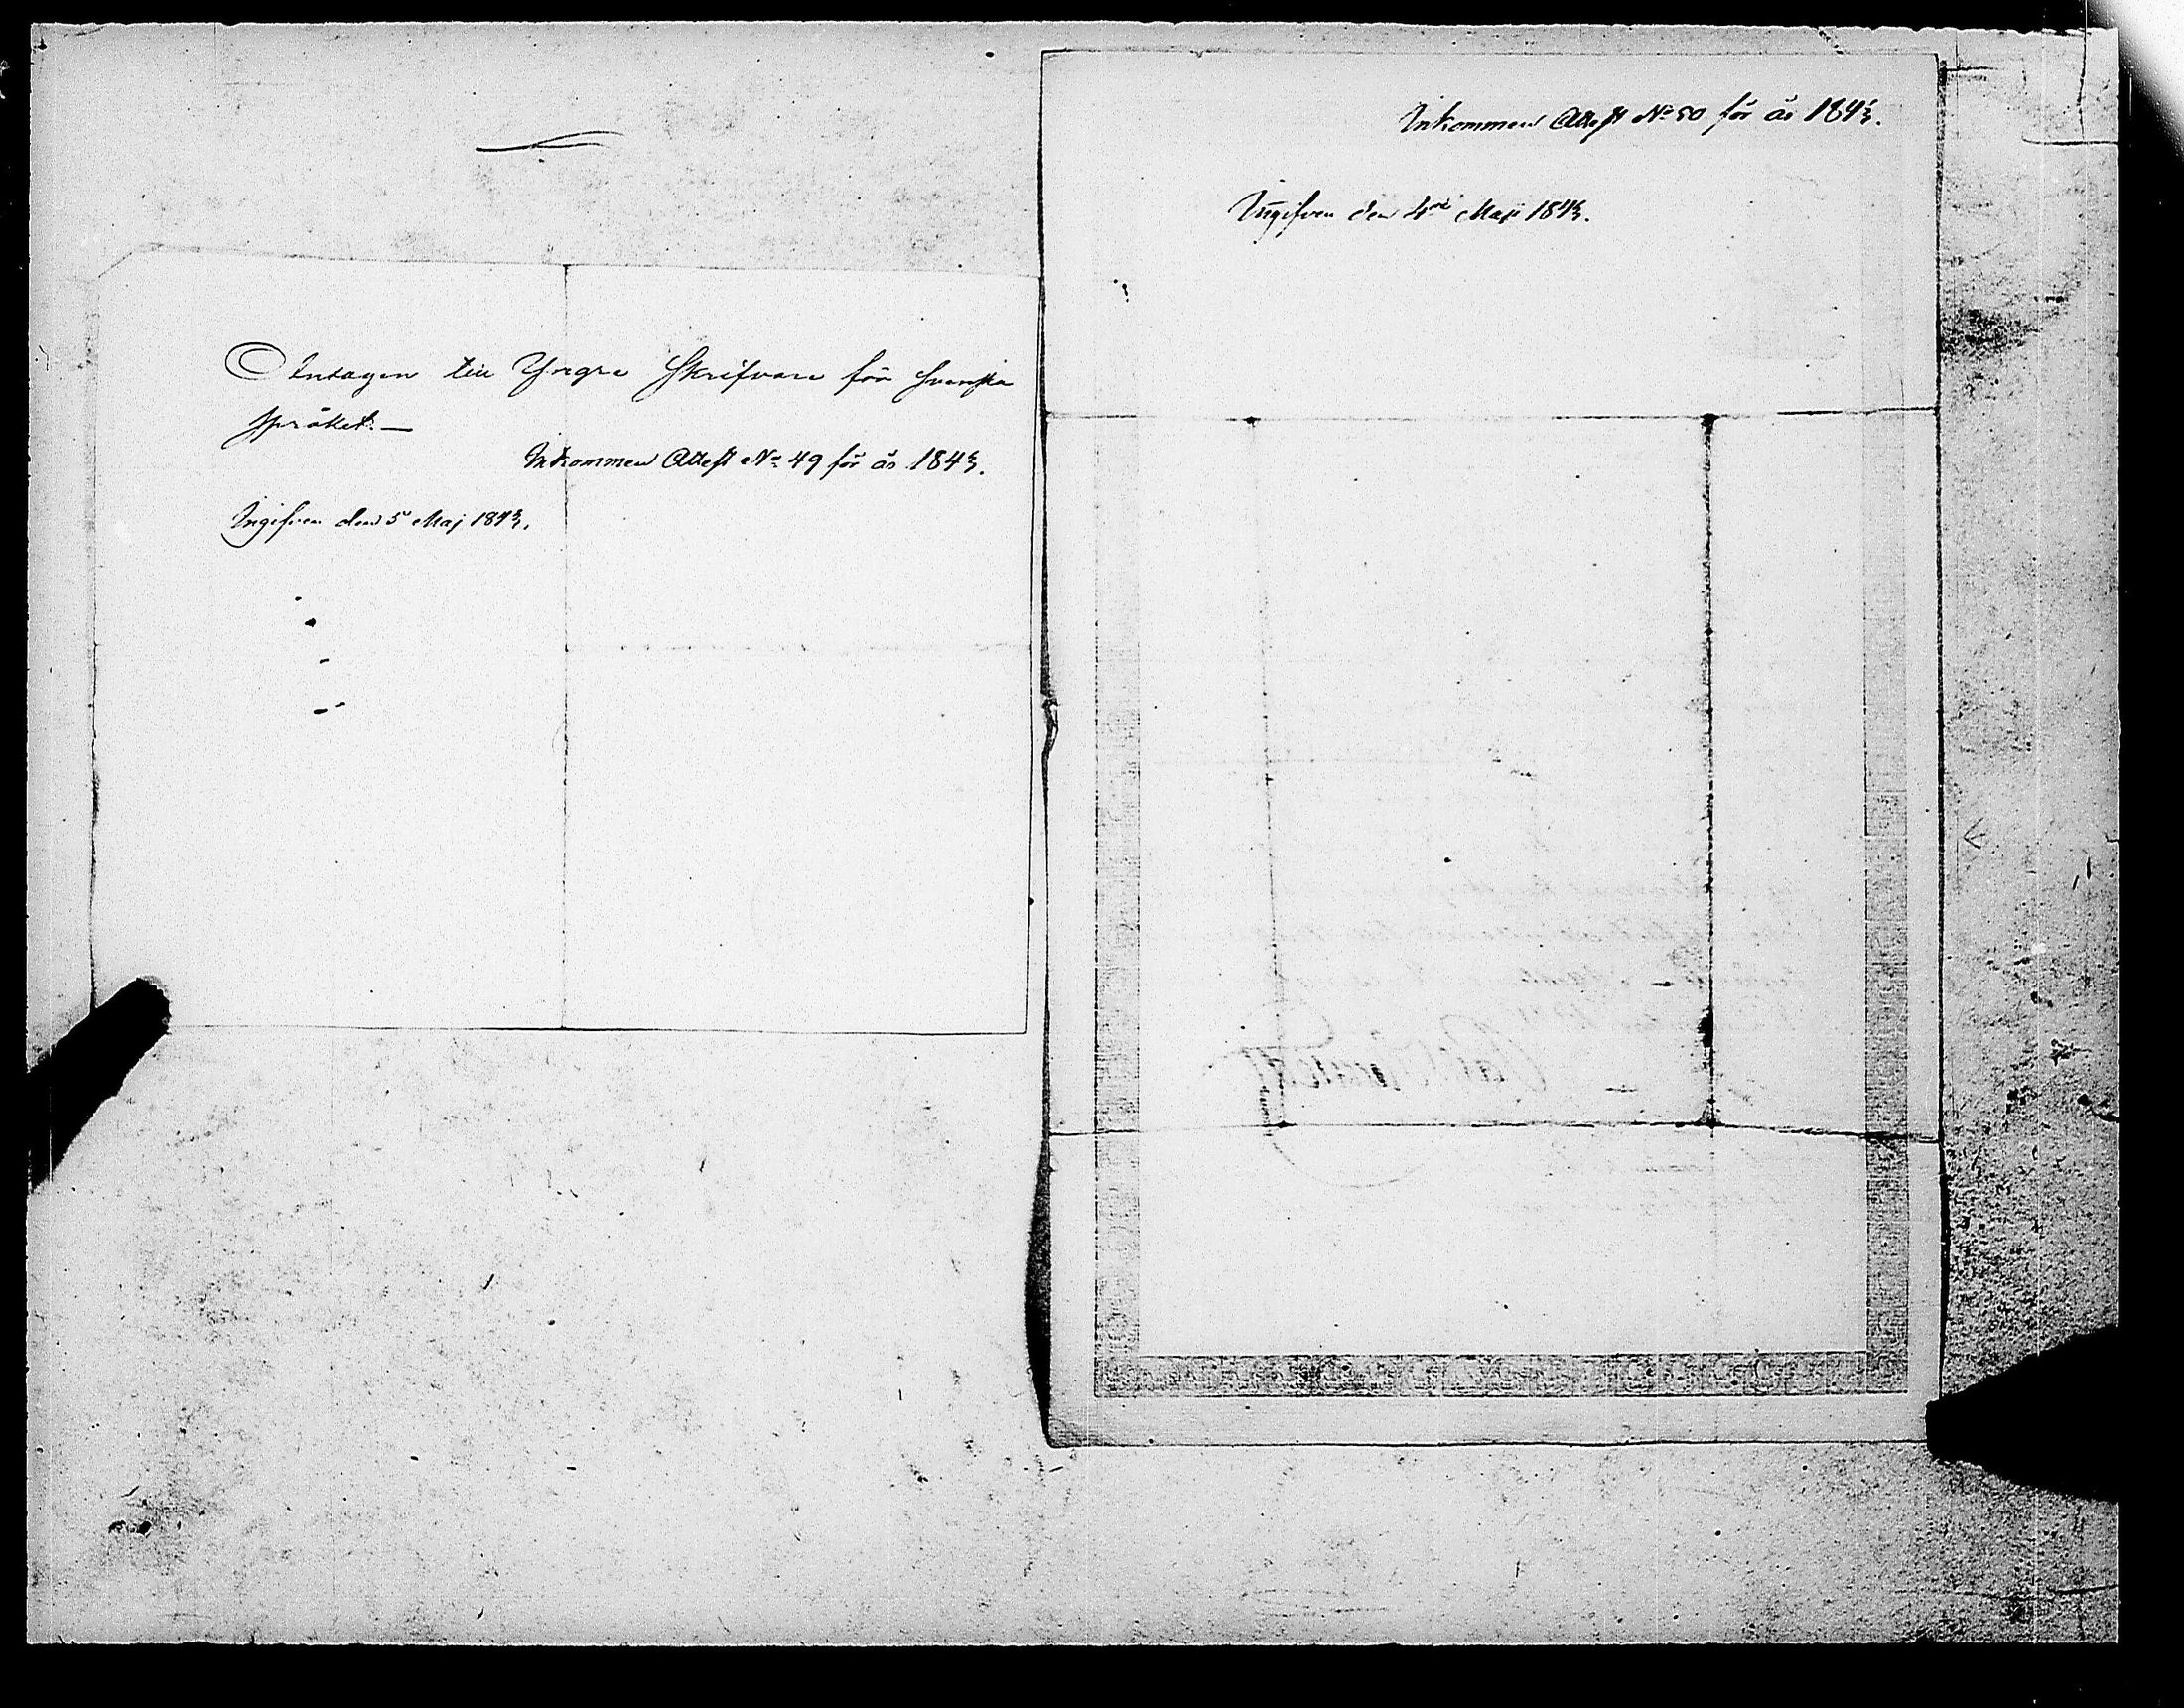 Antagen till Yngre Skrifvare för Svenska
språket.—
Inkommen Attest No 49 för år 1843.
Ingifven den 5 Maj 1843.
Inkommen Attest No 50 för år 1843.
Ingifven den 4de Maji 1843.